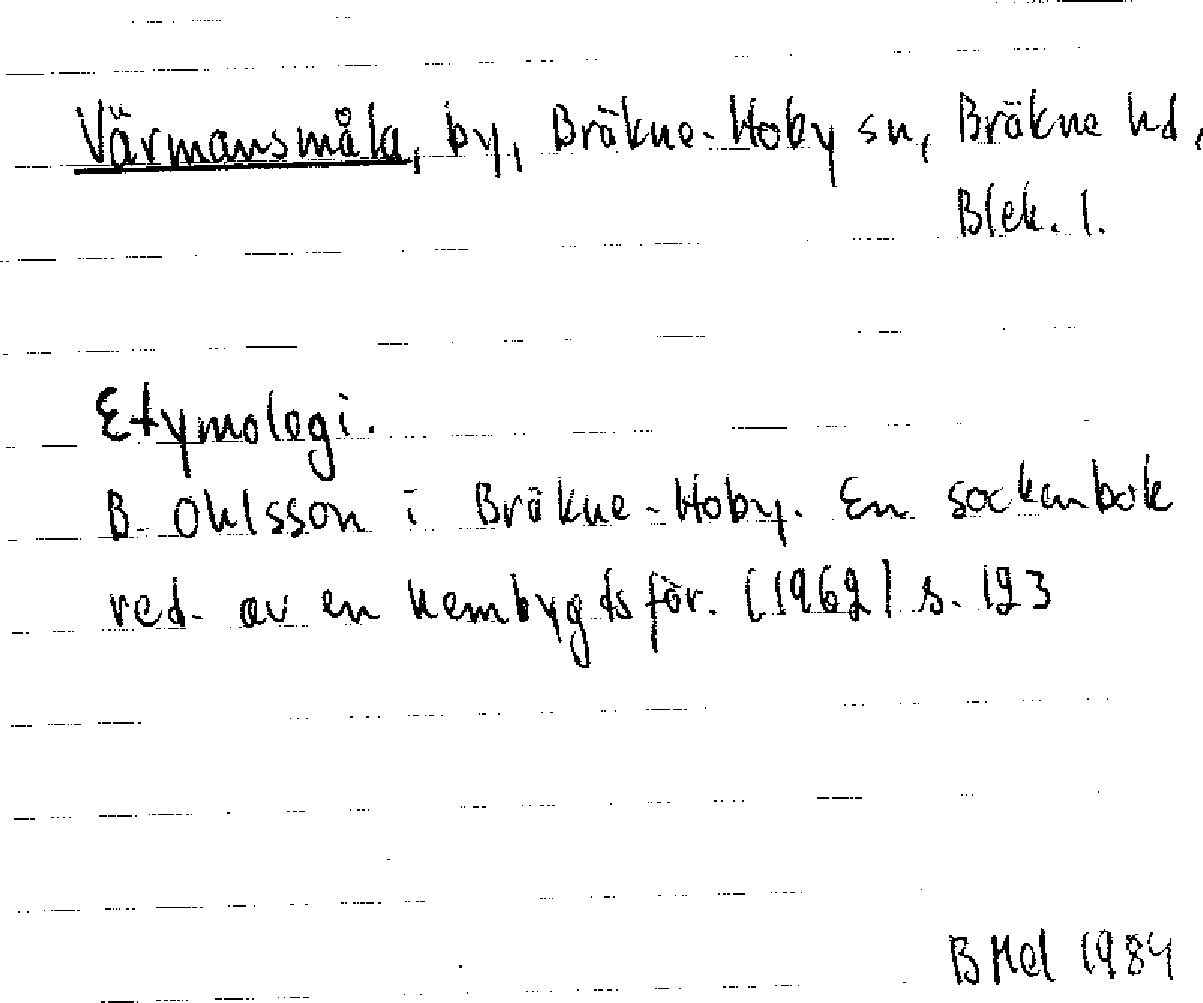 Värmansmåla, by, Bräkne-Hoby sn, Bräkne hd,
Blek. l.
Etymologi.
B. Ohlsson i Bräkne-Hoby. En sockenbok
red. av en hembygdsför. (1962) s. 123
B Hel 1984